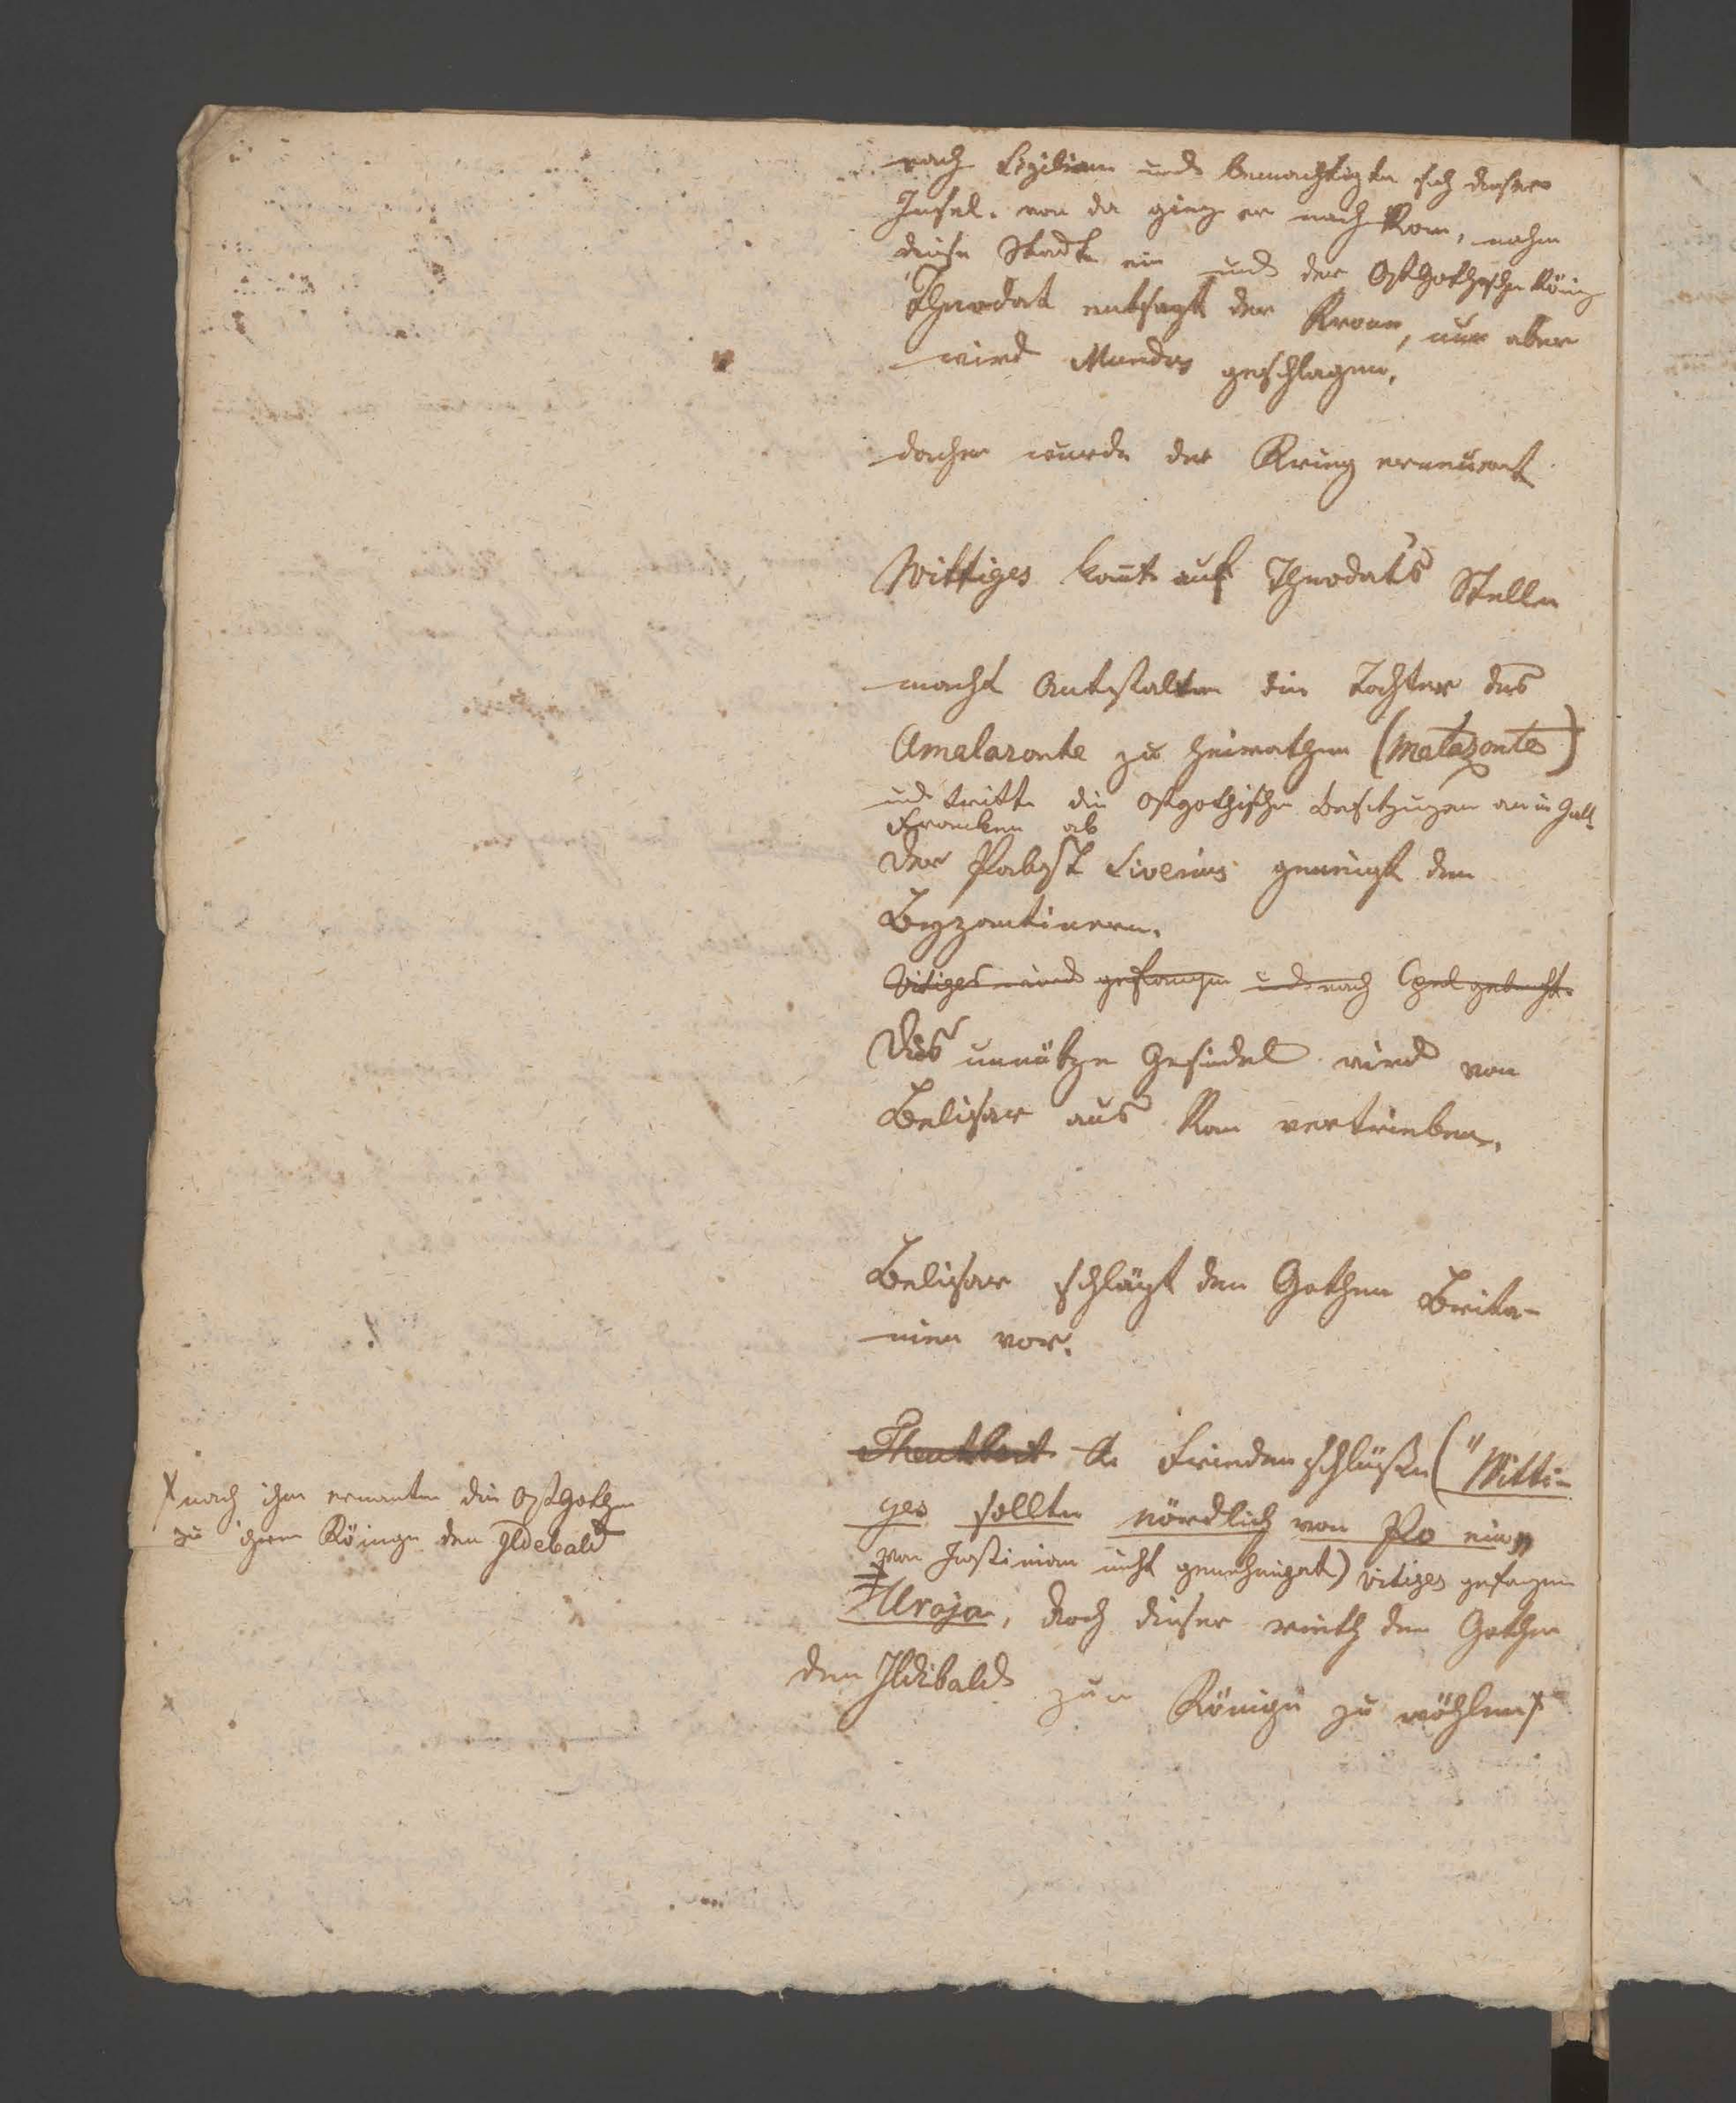 nach Sizilien und bemachtigte sich dieser
Insel. von da gieng er nach Rom, nahm
diese Stadt ein und der Ostgothische König
Theodat entsagt der Krone, nun aber
wird Mundos geschlagen,
daher wurde der Krieg erneuert
Wittiges komt auf Theodats Stelle
macht Anstalten die Tochter der
Amalasonte zu heirathen (Matasonte)
und tritt die ostgothischen Besitzungen an in Gall
Franken ab
der Pabst Siverius geneigt den
Byzantinern.
Vitiges wird gefangen und nach Cpel gebracht.
Das unnütze Gesindel wird von
Belisar aus Rom vertrieben.
Belisar schlägt den Gothen Brita-
nien vor.
Theutbert Friedenschlüße ("Witti-
ges sollte nördlich von Po ein"
von Justinian nicht genehmigt) Vitiges gefangen
Uraja, doch dieser rieth den Gothen
den Ildibald zum Könige zu wählen x
x nach ihm ernanten die Ostgothen
zu ihrem Könige den Ildebald